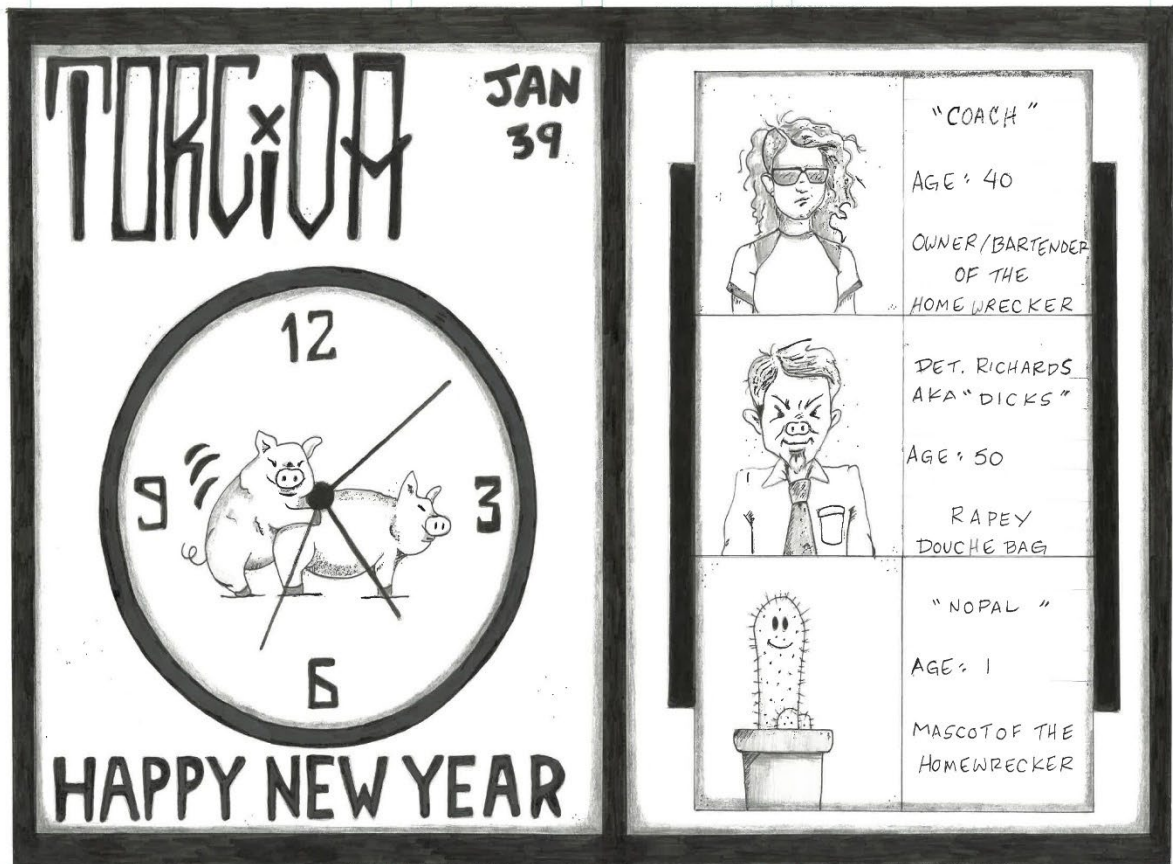 TORCiDA
JAN
39
12
9
3
6
HAPPY NEW YEAR
"COACH"
AGE: 40
OWNER/BARTENDER
OF THE
HOMEWRECKER
DET. RICHARDS
AKA "DICKS"
AGE: 50
RAPEY
DOUCHE BAG
"NOPAL"
AGE: 1
MASCOT OF THE
HOMEWRECKER